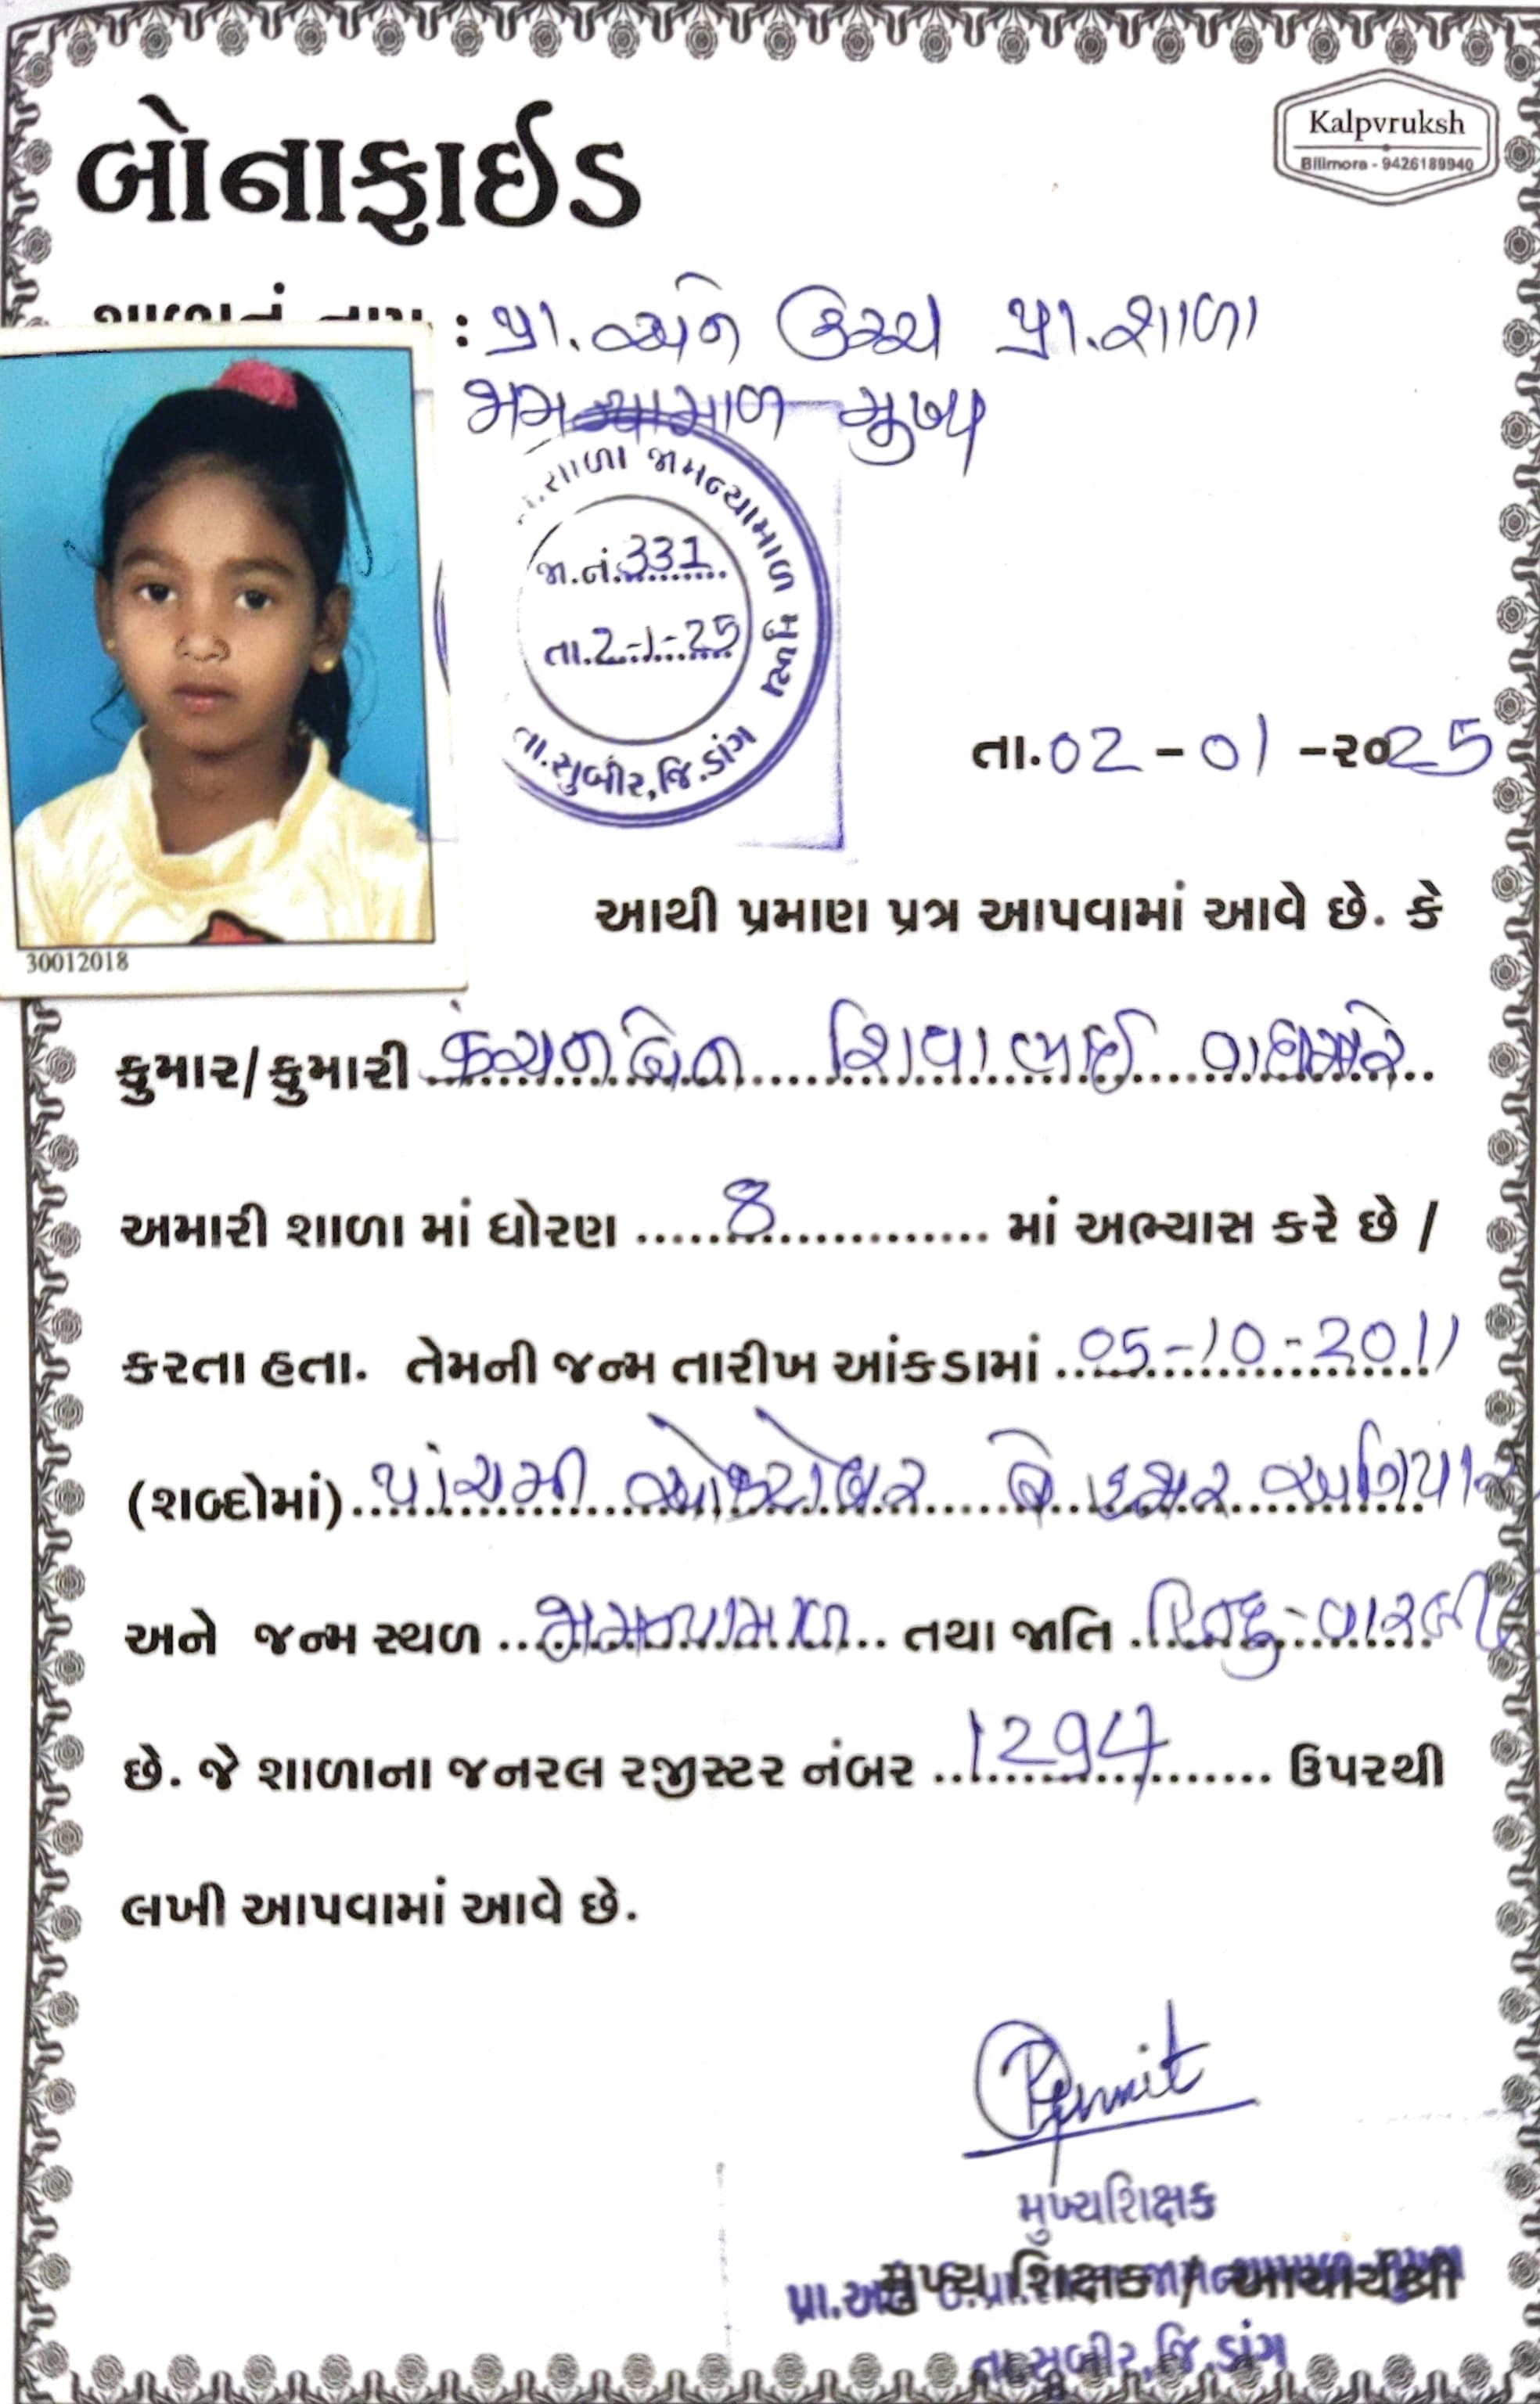 બોનાફાઈડ
Kalpvruksh
Bilimora - 9426189940
શાળાનું નામ : પ્રા. અને ઉચ્ચ પ્રા. શાળા
જામન્યામાળ - મુખ્ય
શાળા જામન્યામાળ મુખ્ય
જા.નં. 331
તા. 2-1-25
તા.સુબીર, જિ.ડાંગ
તા. 02 - 01 - ૨૦25
30012018
આથી પ્રમાણ પત્ર આપવામાં આવે છે. કે
કુમાર/કુમારી કંચનબેન શિવાભાઈ
અમારી શાળા માં ધોરણ 8 માં અભ્યાસ કરે છે /
કરતા હતા. તેમની જન્મ તારીખ આંકડામાં 05-10-2011
(શબ્દોમાં) પાંચમી ઓક્ટોબર બે હજાર અગિયાર
અને જન્મ સ્થળ જામન્યામાળ તથા જાતિ હિન્દુ-વારલી
છે. જે શાળાના જનરલ રજીસ્ટર નંબર 1294 ઉપરથી
લખી આપવામાં આવે છે.
મુખ્યશિક્ષક
મુખ્ય શિક્ષક / આચાર્યશ્રી
તા.સુબીર, જિ.ડાંગ